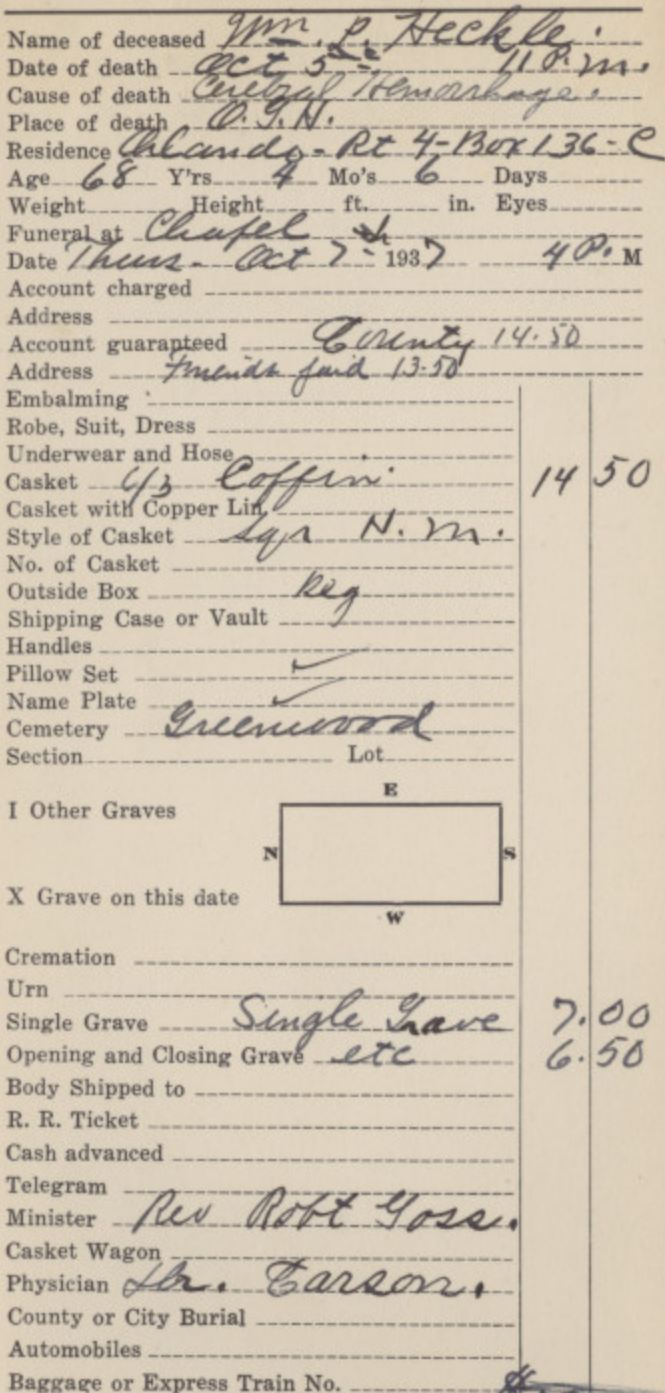 Name of deceased Wm. P. Heckle.
Date of death Oct 5th 11 P.m.
Cause of death Cerebral Hemorrhage.
Place of death O.G.H.
Residence Orlando - Rt 4 - Box 136 - C
Age 68 Y'rs 4 Mo's 6 Days
Weight Height ft. in. Eyes
Funeral at Chapel
Date Thurs - Oct 7th 1937 4 P. M
Account charged
Address
Account guaranteed County 14.50
Address Friends paid 13.50
Embalming
Robe, Suit, Dress
Underwear and Hose
Casket 6/3 Coffin 14 50
Casket with Copper Lin.
Style of Casket Sqr N. M.
No. of Casket
Outside Box Reg
Shipping Case or Vault
Handles
Pillow Set ✓
Name Plate ✓
Cemetery Greenwood
Section Lot
E
I Other Graves
N S
X Grave on this date
W
Cremation
Urn
Single Grave Single Grave 7.00
Opening and Closing Grave etc 6.50
Body Shipped to
R. R. Ticket
Cash advanced
Telegram
Minister Rev Robt Goss.
Casket Wagon
Physician Dr. Carson.
County or City Burial
Automobiles
Baggage or Express Train No.